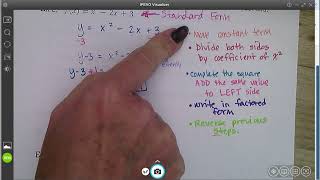 IPEVO Visualizer
- 2x + 3
Standard Form
y = x² - 2x + 3
-3
y-3 = x²
y-3 +1
• Move constant term
• Divide both sides
by coefficient of x²
• complete the square
ADD the same value
to LEFT side
• write in factored
form
• Reverse previous
steps.